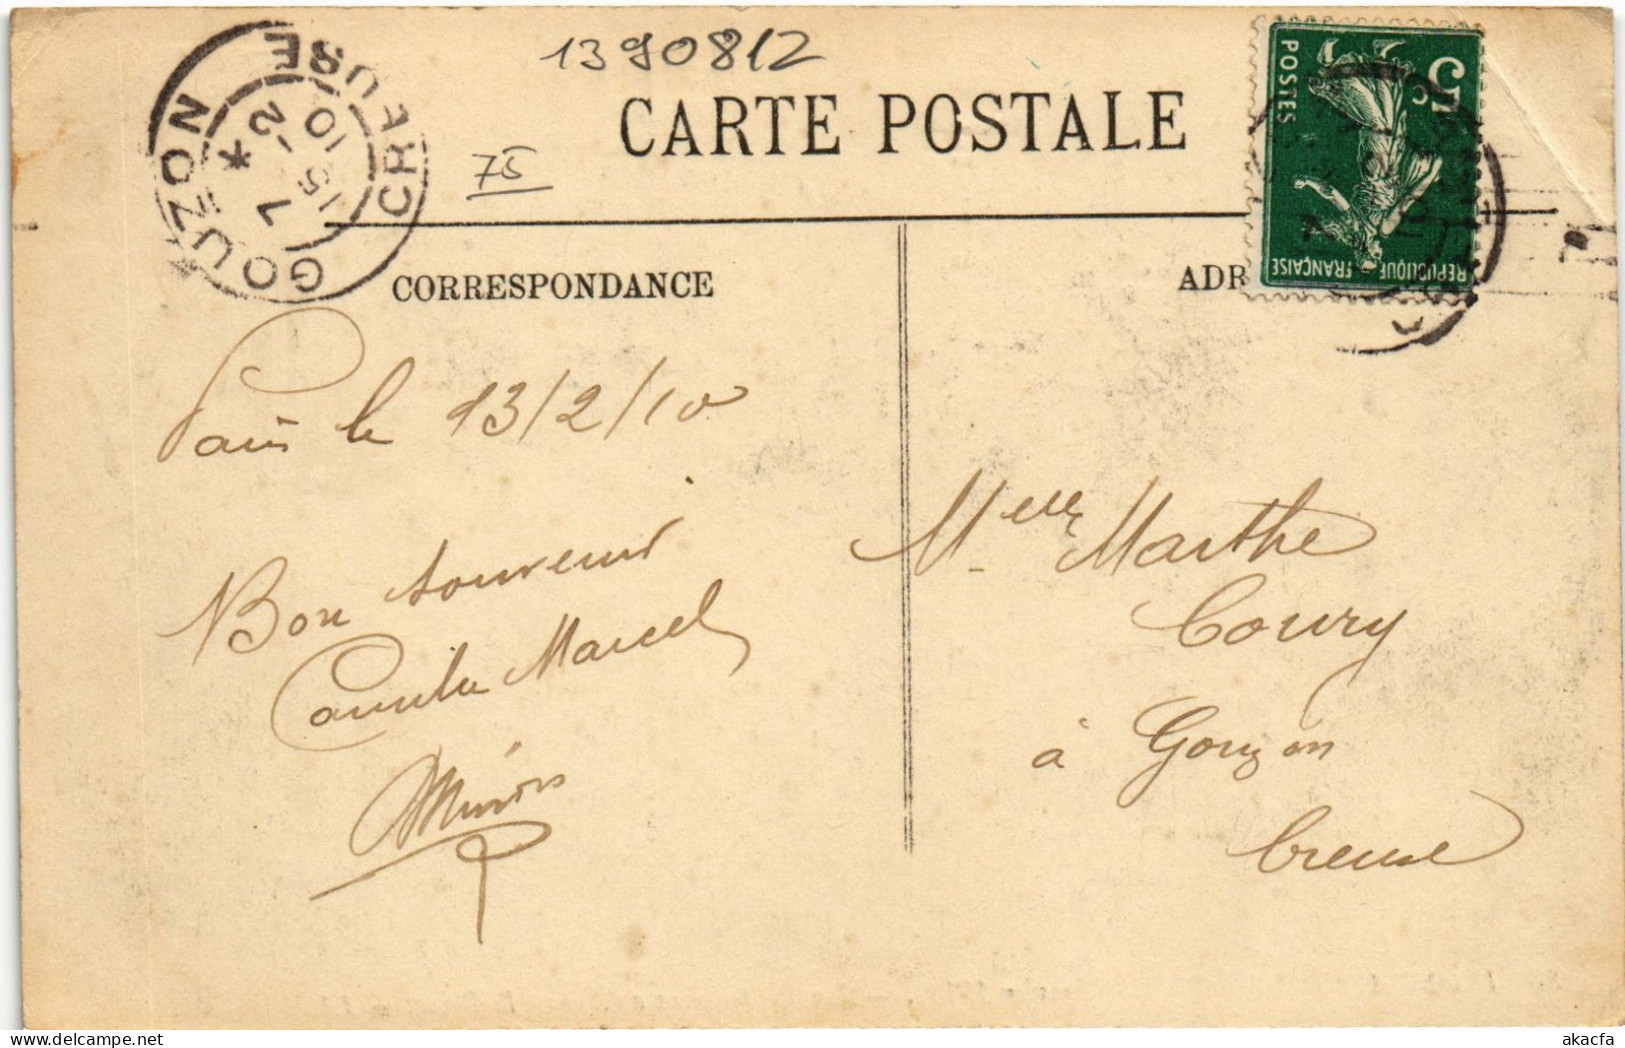 1390812
CARTE POSTALE
75
GOUZON
CREUSE
7 *
15-2
10
5c
POSTES
REPUBLIQUE FRANÇAISE
CORRESPONDANCE
ADR
Paris le 13/2/10
Bon souvenir
Camille Marcel
Melle Marthe
Coury
à Gouzon
Creuse
akacfa